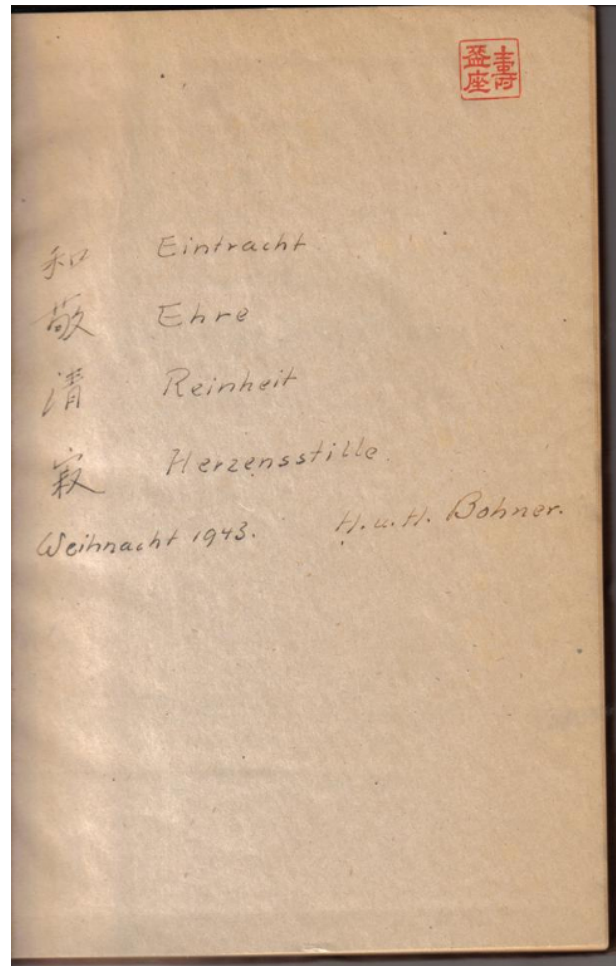 壽
座
和 Eintracht
敬 Ehre
清 Reinheit
寂 Herzensstille.
Weihnacht 1943. H. u. H. Bohner.